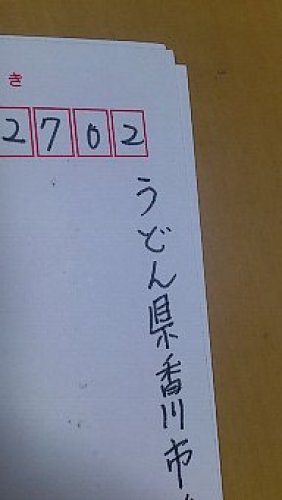 き
2702
うどん県香川市